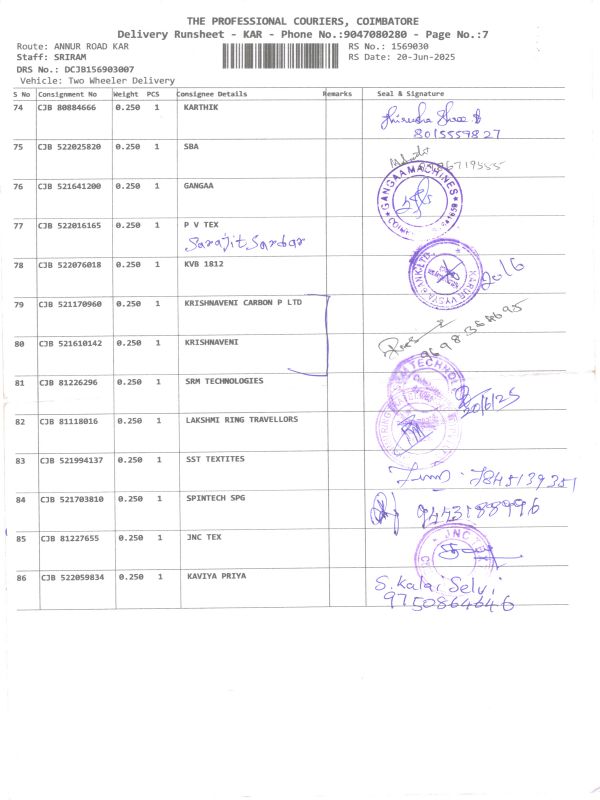 THE PROFESSIONAL COURIERS, COIMBATORE
Delivery Runsheet - KAR - Phone No.:9047080280 - Page No.:7
Route: ANNUR ROAD KAR RS No.: 1569030
Staff: SRIRAM RS Date: 20-Jun-2025
DRS No.: DCJB156903007
Vehicle: Two Wheeler Delivery
S No Consignment No Weight PCS Consignee Details Remarks Seal & Signature
74 CJB 80884666 0.250 1 KARTHIK
8015559827
75 CJB 522025820 0.250 1 SBA
76 CJB 521641200 0.250 1 GANGAA
GANGAA MACHINES
77 CJB 522016165 0.250 1 P V TEX
Sarajit Sardar
78 CJB 522076018 0.250 1 KVB 1812
2016
79 CJB 521170960 0.250 1 KRISHNAVENI CARBON P LTD
80 CJB 521610142 0.250 1 KRISHNAVENI
81 CJB 81226296 0.250 1 SRM TECHNOLOGIES
20/6/25
82 CJB 81118016 0.250 1 LAKSHMI RING TRAVELLORS
83 CJB 521994137 0.250 1 SST TEXTITES
7845139351
84 CJB 521703810 0.250 1 SPINTECH SPG
9443188996
85 CJB 81227655 0.250 1 JNC TEX
JNC
86 CJB 522059834 0.250 1 KAVIYA PRIYA
S. Kalai Selvi
9750864646